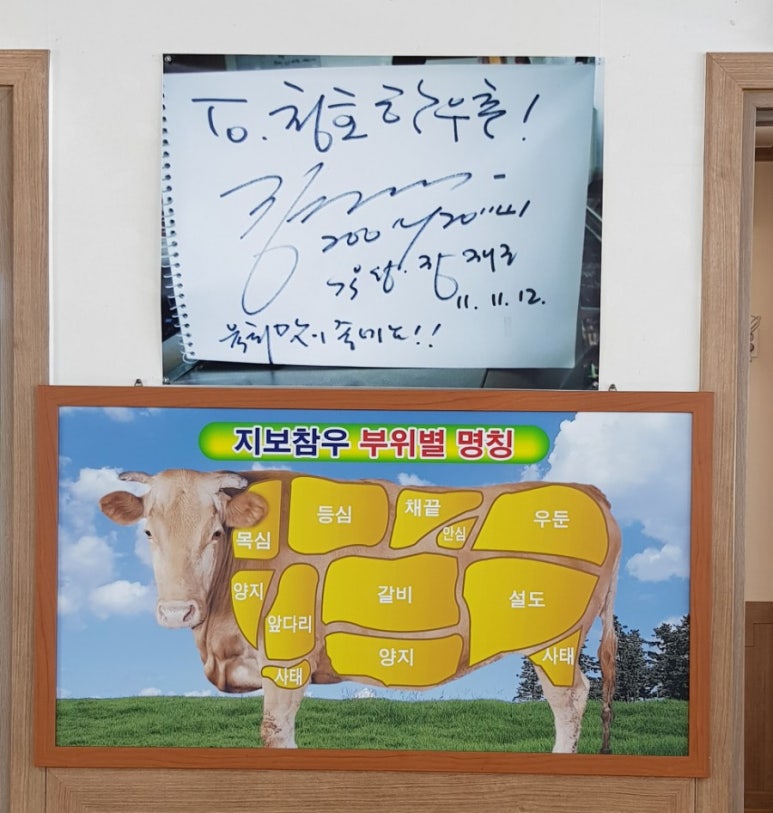 To. 청호 한우촌!
200m/200m
육상. 장재근
11. 11. 12.
육회맛이 죽여요!!
지보참우 부위별 명칭
목심 등심 채끝 안심 우둔
양지 앞다리 갈비 설도
사태 양지 사태